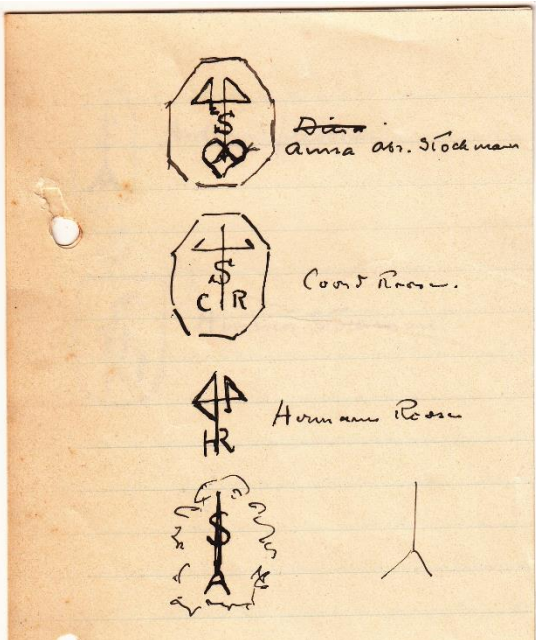 S
Anna Abr. Stockmann
S
C R
Coord Reese.
HR
Hermann Reese
S
A